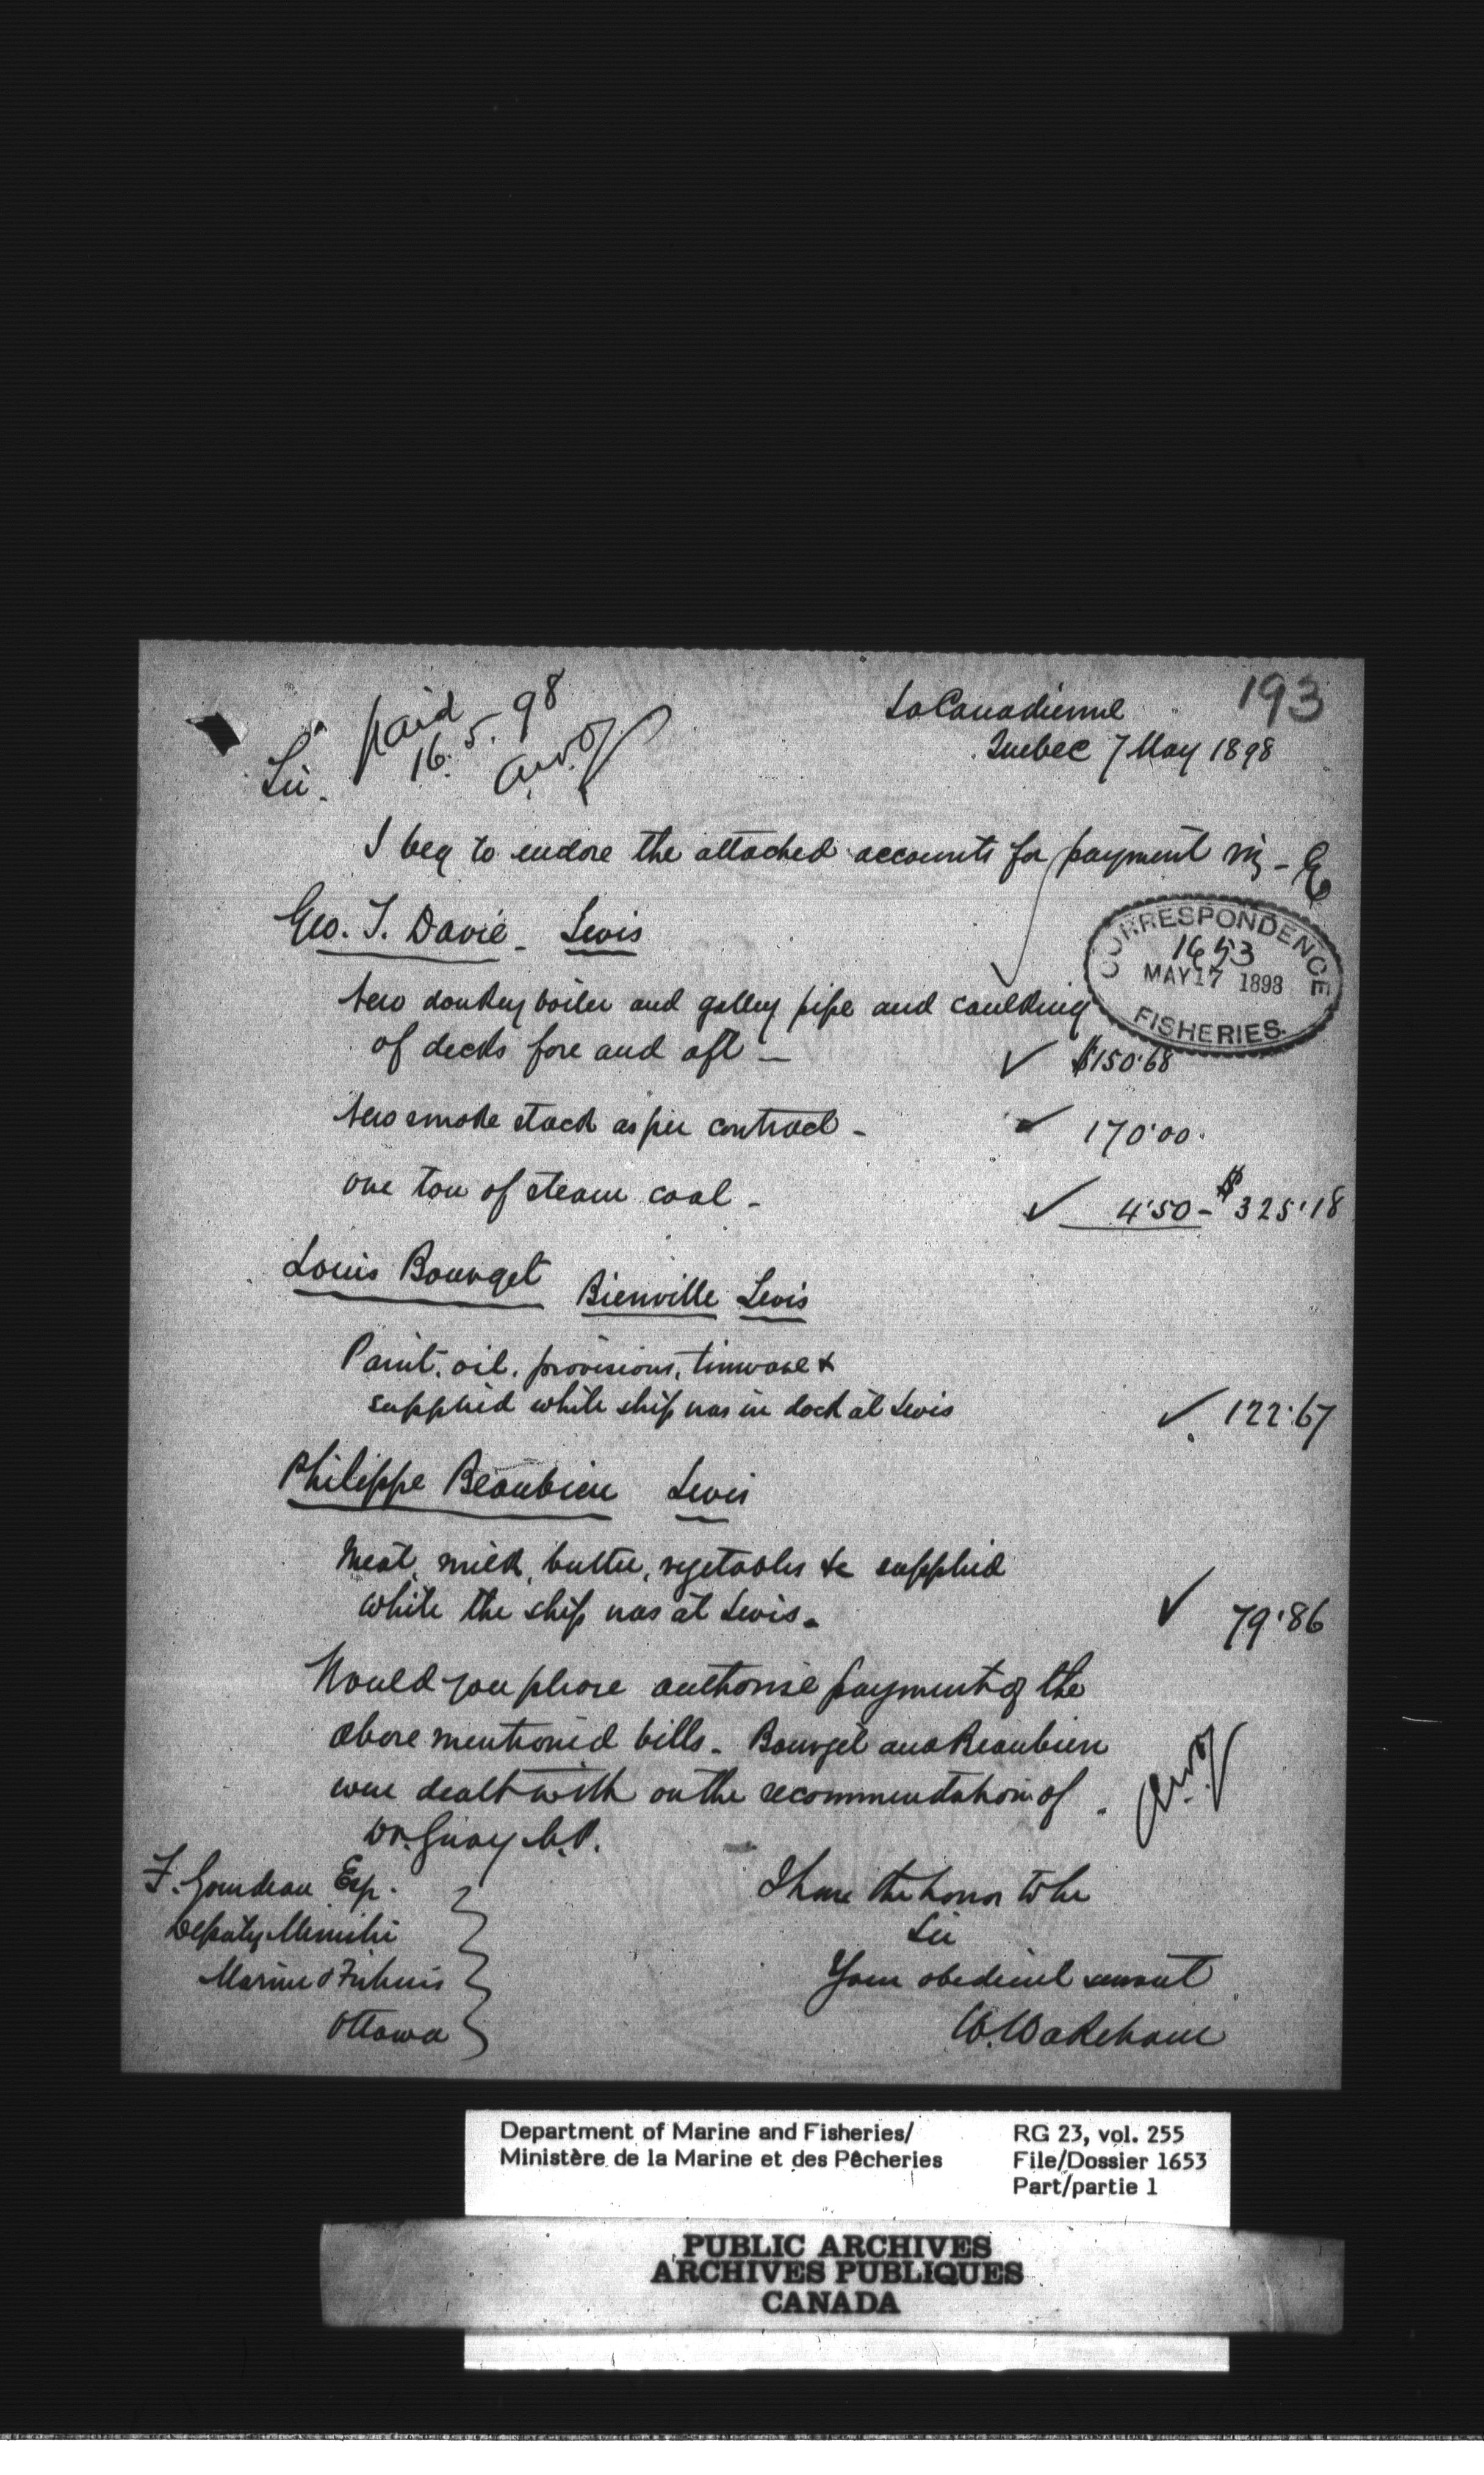 193
La Canadienne
Quebec 7 May 1898
paid
16.5.98
Sir.
I beg to endore the attached accounts for payment viz -
CORRESPONDENCE
1653
MAY 17 1898
FISHERIES.
Geo. T. Davie - Levis
New donkey boiler and galley pipe and caulking
of decks fore and aft - $150.68
New smoke stack as per contract - 170.00
one ton of steam coal - 4.50 - $325.18
Louis Bourget Bienville Levis
Paint, oil, provisions, tinware &
supplied while ship was in dock at Levis 122.67
Philippe Beaubien Levis
Meat, milk, butter, vegetables &c supplied
while the ship was at Levis. 79.86
Would you please authorise payment of the
above mentioned bills - Bourget and Beaubien
were dealt with on the recommendation of
Dr. Guay M.P.
I have the honor to be
Sir
Your obedient servant
W. Wakeham
F. Gourdeau Esq.
Deputy Minister
Marine & Fisheries
Ottawa
Department of Marine and Fisheries/
Ministère de la Marine et des Pêcheries
RG 23, vol. 255
File/Dossier 1653
Part/partie 1
PUBLIC ARCHIVES
ARCHIVES PUBLIQUES
CANADA